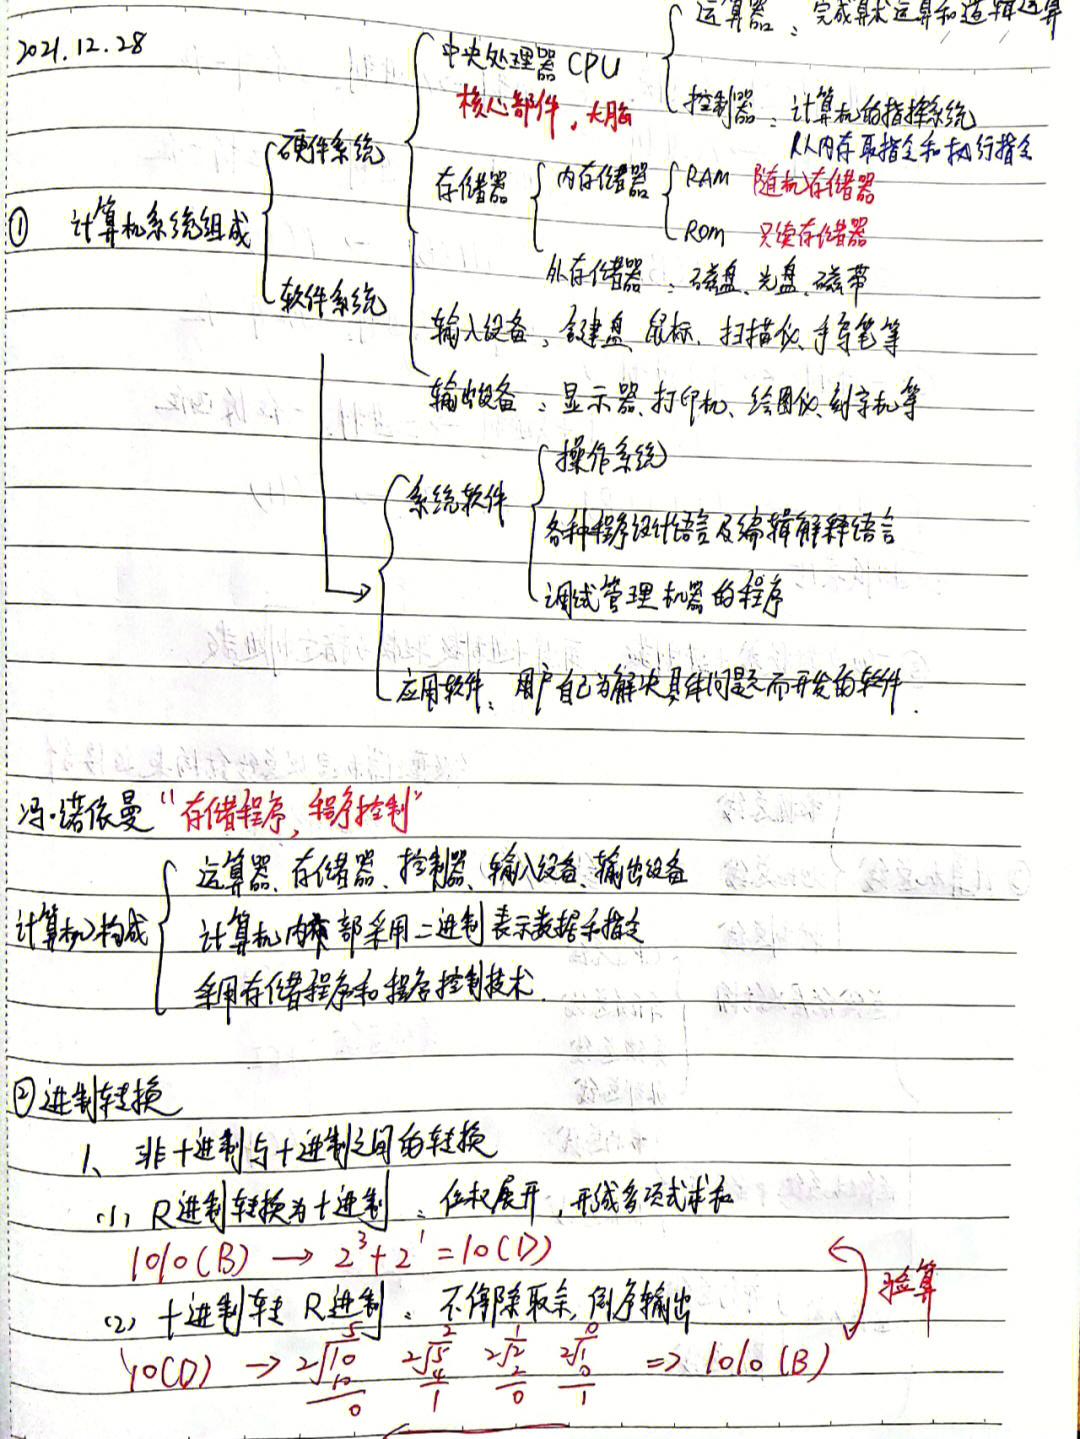 运算器：完成算术运算和逻辑运算
2021.12.28
中央处理器 CPU
核心部件，大脑
控制器：计算机的指挥系统
从内存取指令和执行指令
硬件系统
存储器 内存储器 RAM 随机存储器
① 计算机系统组成
ROM 只读存储器
外存储器：磁盘、光盘、磁带
软件系统
输入设备：键盘、鼠标、扫描仪、手写笔等
输出设备：显示器、打印机、绘图仪、刻字机等
操作系统
系统软件
各种程序设计语言及编辑解释语言
调试管理机器的程序
应用软件：用户自己为解决具体问题而开发的软件.
冯·诺依曼 “存储程序，程序控制”
运算器、存储器、控制器、输入设备、输出设备
计算机构成
计算机内部采用二进制表示数据和指令
采用存储程序和程序控制技术.
② 进制转换
1、非十进制与十进制之间的转换
(1) R进制转换为十进制：位权展开，形成多项式求和
1010(B) → 2³+2¹=10(D)
验算
(2) 十进制转 R进制：不停除取余，倒序输出
5 2 1 0
10(D) → 2√10 2√5 2√2 2√1 => 1010(B)
10 4 2 0
0 1 0 1